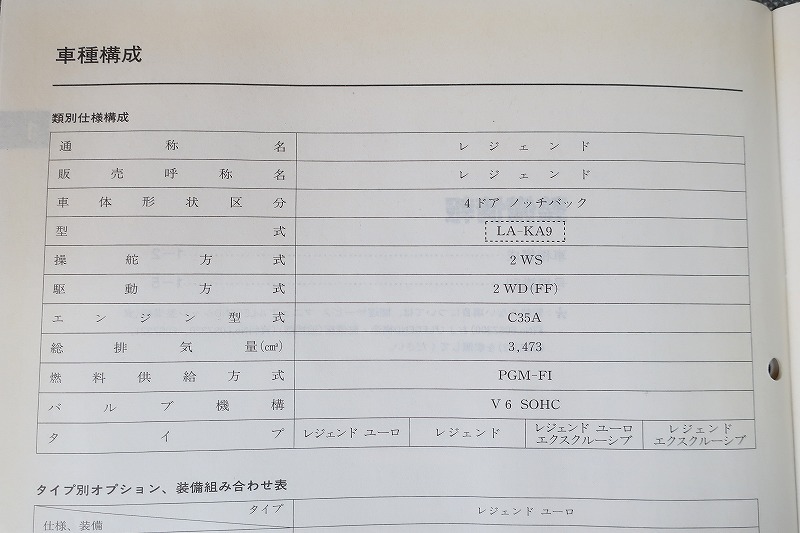 車種構成
類別仕様構成
通称名 レジェンド
販売呼称名 レジェンド
車体形状区分 4ドア ノッチバック
型式 LA-KA9
操舵方式 2WS
駆動方式 2WD(FF)
エンジン型式 C35A
総排気量(cm³) 3,473
燃料供給方式 PGM-FI
バルブ機構 V6 SOHC
タイプ レジェンド ユーロ レジェンド レジェンド ユーロ エクスクルーシブ レジェンド エクスクルーシブ
タイプ別オプション、装備組み合わせ表
タイプ レジェンド ユーロ
仕様、装備